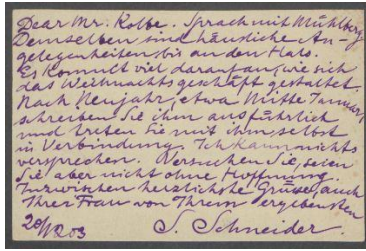 Dear Mr. Kolbe. Sprach mit Mühlberg.
Demselben sind häusliche An-
gelegenheiten bis an den Hals.
Es kommt viel darauf an, wie sich
das Weihnachtsgeschäft gestaltet.
Nach Neujahr, etwa Mitte Januar,
schreiben Sie ihm ausführlich
und treten Sie mit ihm selbst
in Verbindung. Ich kann nichts
versprechen. Versuchen Sie, seien
Sie aber nicht ohne Hoffnung.
Inzwischen herzlichste Grüsse, auch
Ihrer Frau von Ihrem ergebensten
S. Schneider.